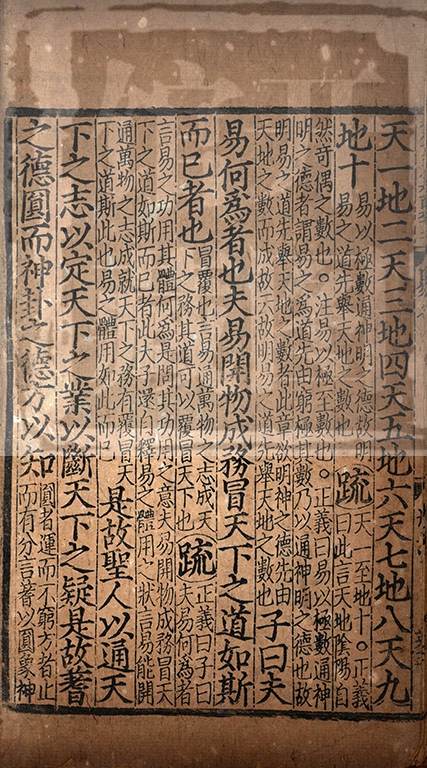 天一地二天三地四天五地六天七地八天九
地十
易以極數通神明之德故明
易之道先舉天地之數也
疏
天一至地十○正義
曰此言天地陰陽自
然奇偶之數也○注易以極至數也○正義曰易以極數通神
明之德者謂易之爲道先由窮極其數乃以通神明之德也故
明易之道先舉天地之數者此章欲明神之德先由
天地之數而成故云故明易之道先舉天地之數也
子曰夫
易何爲者也夫易開物成務冒天下之道如斯
而已者也
冒覆也言易通萬物之志成天
下之務其道可以覆冒天下也
疏
正義曰子曰
夫易何爲者
言易之功用其體何爲是問其功用之意夫易開物成務冒天
下之道如斯而已者此夫子還自釋易之體用之狀言易能開
通萬物之志成就天下之務有覆冒天
下之道斯此也易之體用如此而已
是故聖人以通天
下之志以定天下之業以斷天下之疑是故蓍
之德圓而神卦之德方以知
圓者運而不窮方者止
而有分言蓍以圓象神